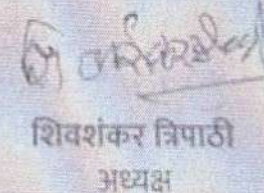 शिवशंकर त्रिपाठी
अध्यक्ष